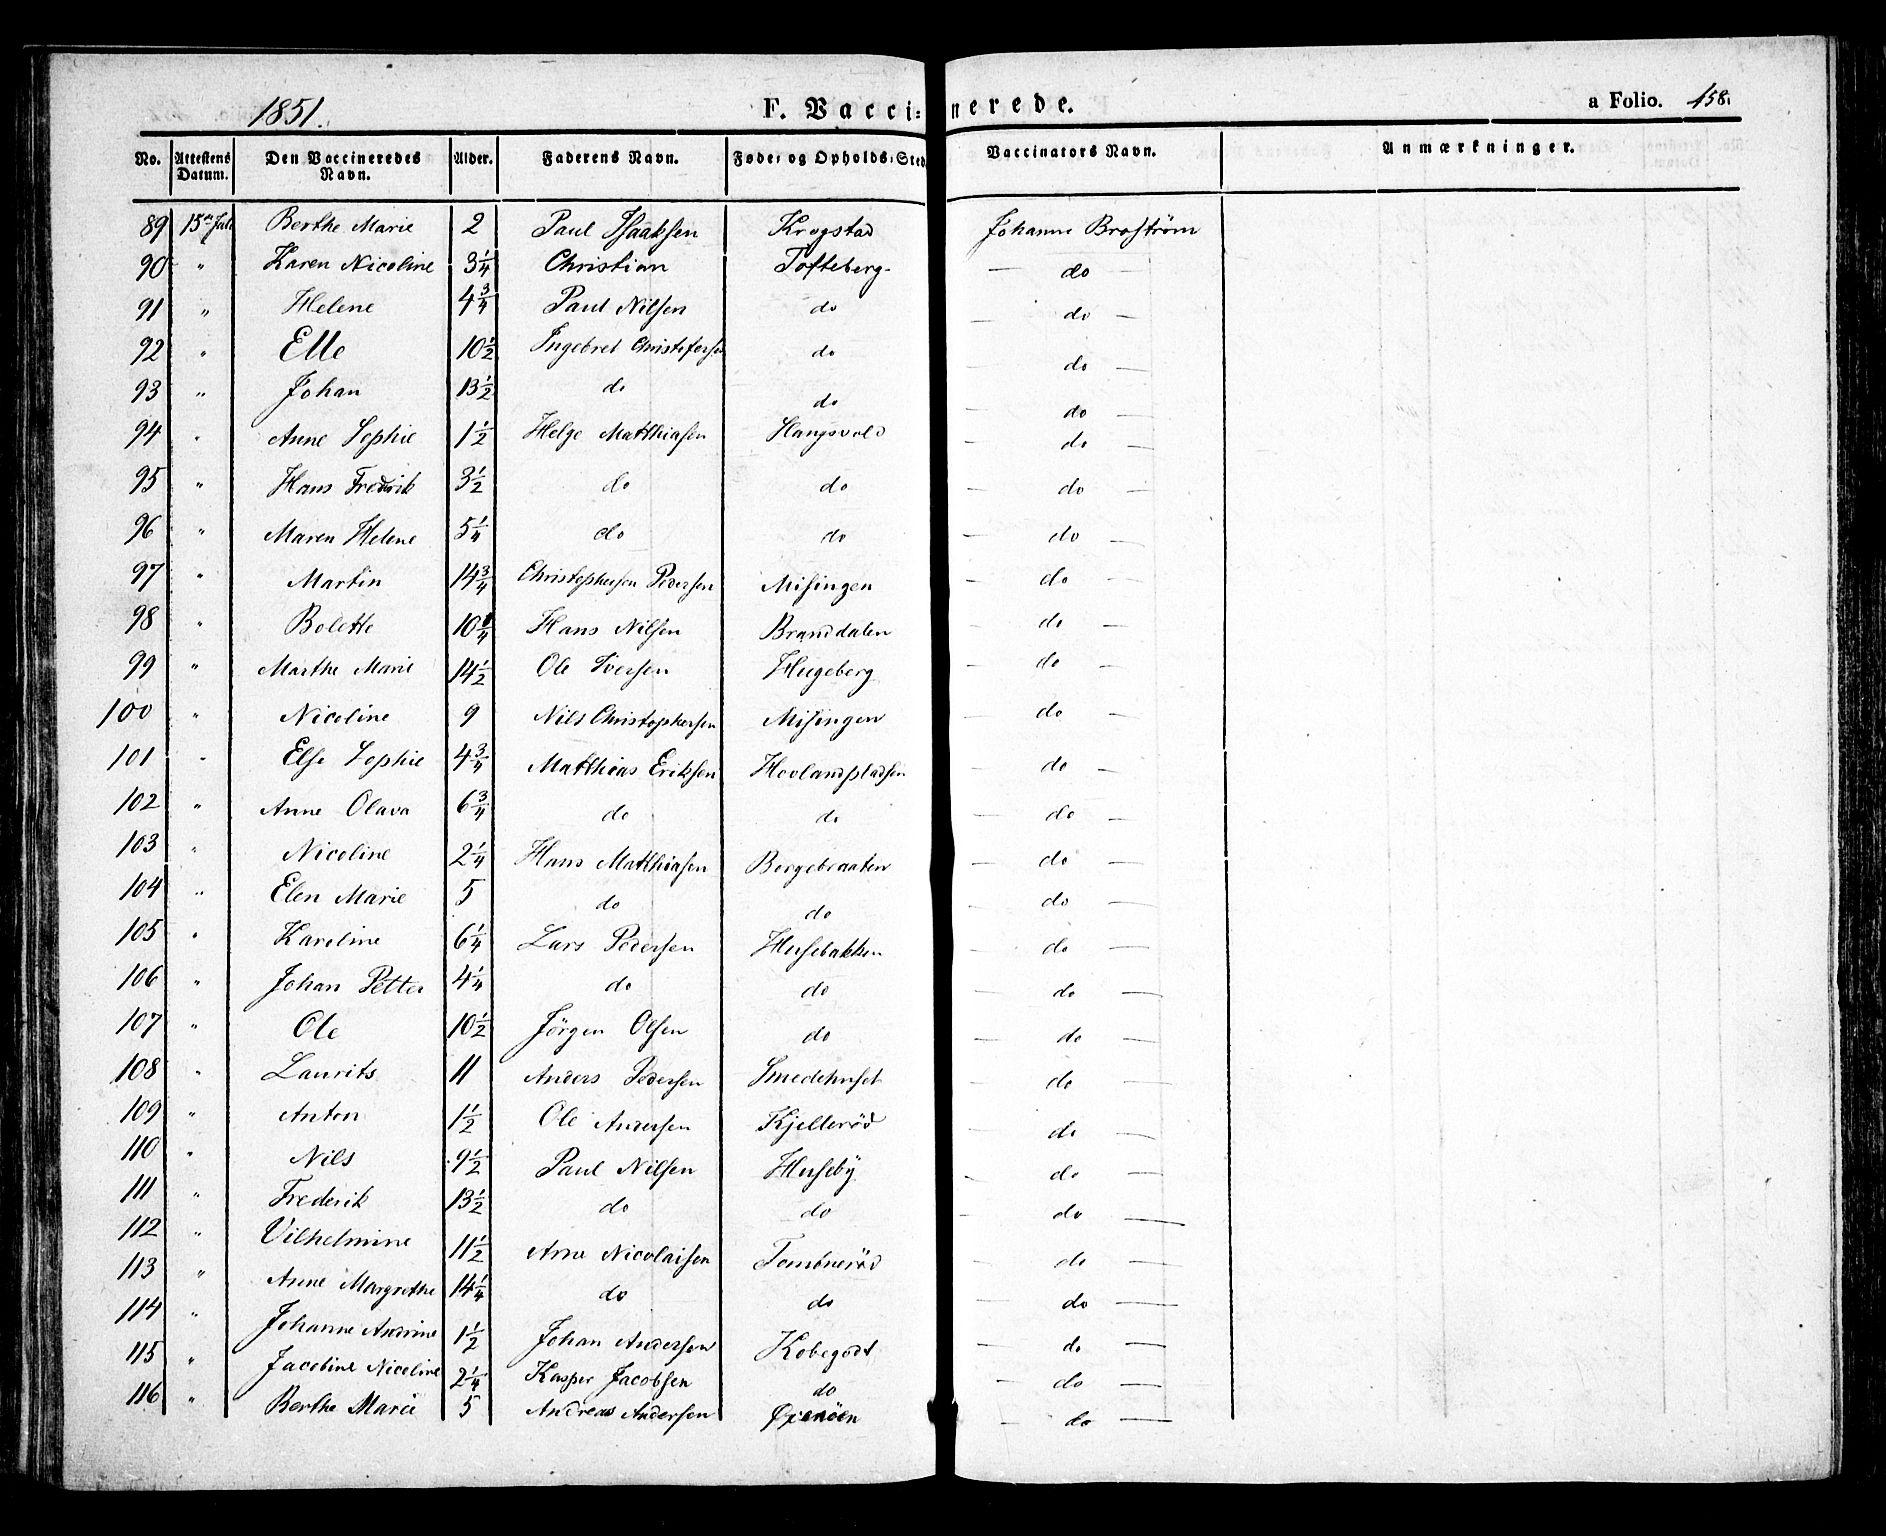 1851. F. Vaccinerede. a Folio. 158.
No. Attestens Datum. Den Vaccineredes Navn. Alder. Faderens Navn. Føde- og Opholds-Sted Vaccinators Navn. Anmærkninger.
89 15de Juli Berthe Marie 2 Paul Isaaksen Krogstad Johanne Broström
90 " Karen Nicoline 3 1/4 Christian Tofteberg - do -
91 " Helene 4 3/4 Paul Nilsen do - do -
92 " Elle 10 1/2 Ingebret Christofersen do - do -
93 " Johan 13 1/2 do do - do -
94 " Anne Sophie 1 1/2 Helge Matthiasen Haugsvold - do -
95 " Hans Fredrik 3 1/2 do do - do -
96 " Maren Helene 5 1/4 do do - do -
97 " Martin 14 3/4 Christophersen Pedersen Misingen - do -
98 " Bolette 10 1/4 Hans Nilsen Branddalen - do -
99 " Marthe Marie 14 1/2 Ole Iversen Hugeberg - do -
100 " Nicoline 9 Nils Christophersen Misingen - do -
101 " Else Sophie 4 3/4 Matthias Eriksen Hovlandspladsen - do -
102 " Anne Olava 6 3/4 do do - do -
103 " Nicoline 2 1/4 Hans Matthiasen Borgebraaten - do -
104 " Elen Marie 5 do do - do -
105 " Karoline 6 1/4 Lars Pedersen Husebakken - do -
106 " Johan Petter 4 1/4 do do - do -
107 " Ole 10 1/2 Jörgen Olsen do - do -
108 " Laurits 11 Anders Pedersen Smedehuset - do -
109 " Anton 1 1/2 Ole Andersen Kjelleröd - do -
110 " Nils 9 1/2 Paul Nilsen Huseby - do -
111 " Frederik 13 1/2 do do - do -
112 " Vilhelmine 11 1/2 Arne Nicolaisen Tombneröd - do -
113 " Anne Margrethe 14 1/4 do do - do -
114 " Johanne Andrine 1 1/2 Johan Andersen Kobegodt - do -
115 " Jacobine Nicoline 2 1/4 Kasper Jacobsen do - do -
116 " Berthe Marie 5 Andreas Andersen Öxenöen - do -